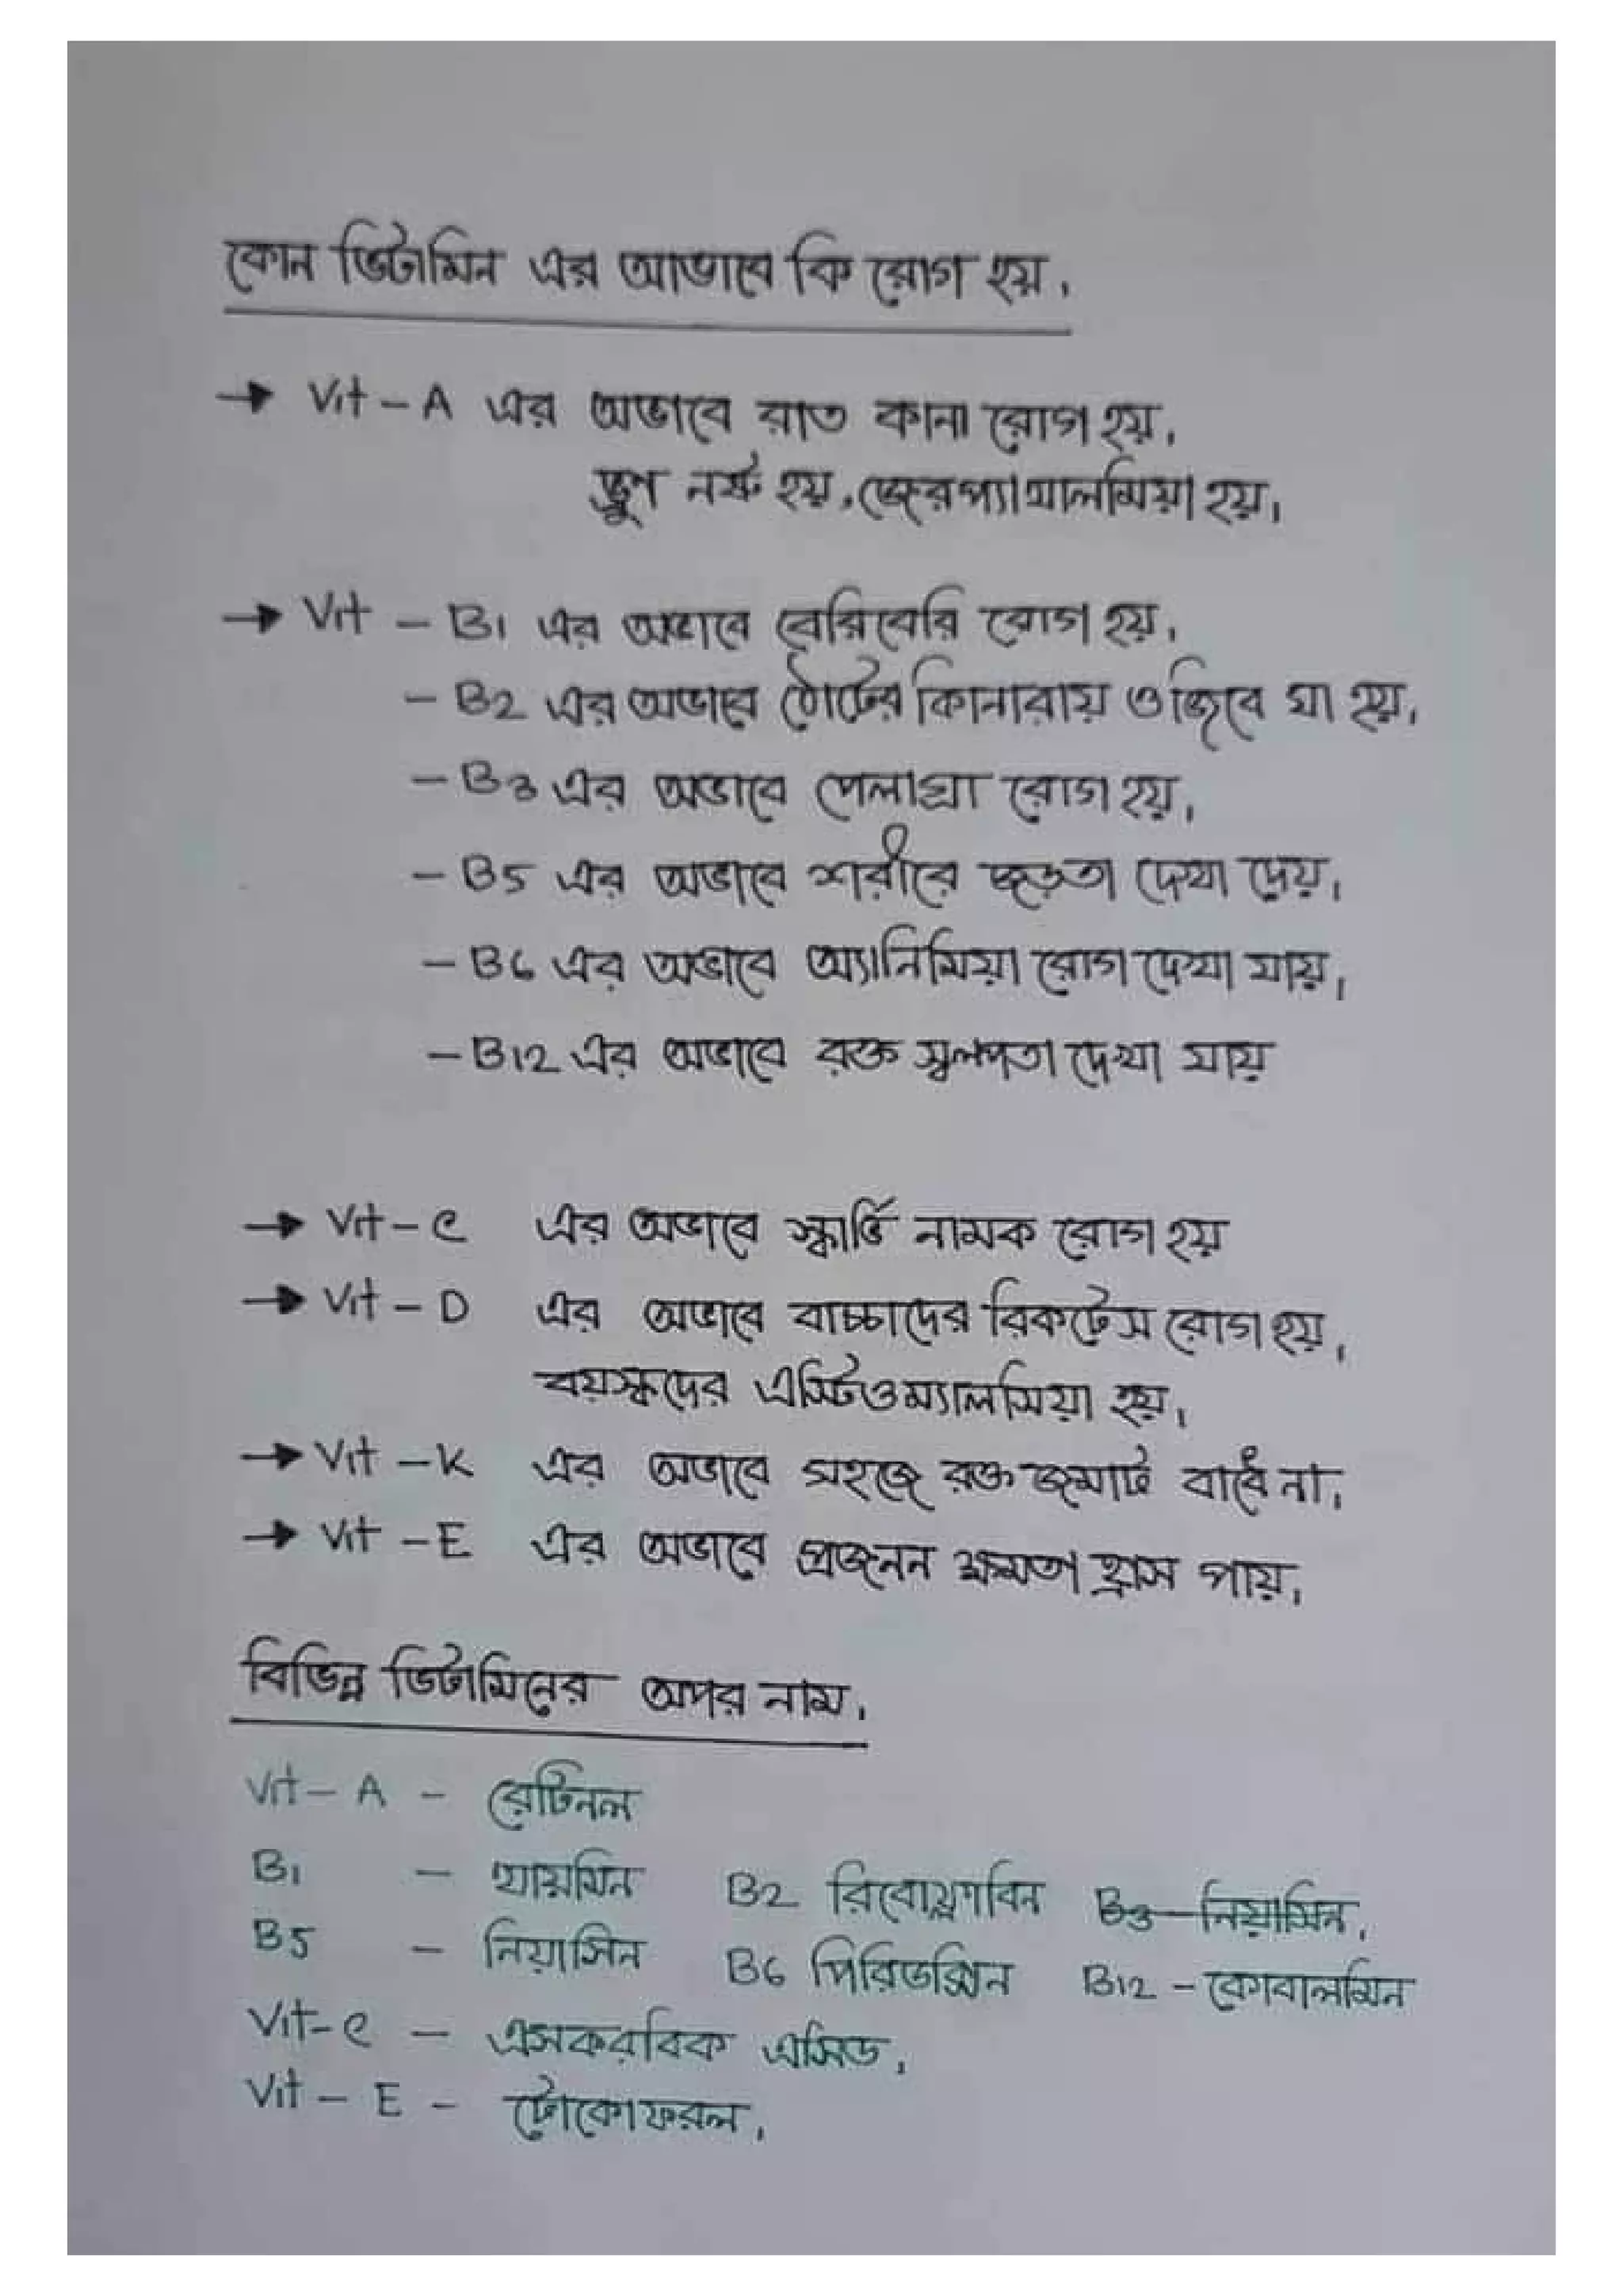 কোন ভিটামিন এর আভাবে কি রোগ হয়।
→ Vit – A এর অভাবে রাত কানা রোগ হয়।
ভ্রুণ নষ্ট হয়, জেরপ্যাথালমিয়া হয়।
→ Vit – B1 এর অভাবে বেরিবেরি রোগ হয়।
– B2 এর অভাবে ঠোঁটের কিনারায় ও জিবে ঘা হয়।
– B3 এর অভাবে পেলাগ্রা রোগ হয়।
– B5 এর অভাবে শরীরে জড়তা দেখা দেয়।
– B6 এর অভাবে অ্যানিমিয়া রোগ দেখা যায়।
– B12 এর অভাবে রক্ত স্বলপতা দেখা যায়
→ Vit – C এর অভাবে স্কার্ভি নামক রোগ হয়
→ Vit – D এর অভাবে বাচ্চাদের রিকটেস রোগ হয়।
বয়স্কদের এস্টিওম্যালসিয়া হয়।
→ Vit – K এর অভাবে সহজে রক্ত জমাট বাধেঁ না।
→ Vit – E এর অভাবে প্রজনন ক্ষমতা হ্রাস পায়।
বিভিন্ন ভিটামিনের অপর নাম।
Vit – A – রেটিনল
B1 – থায়মিন B2 রিবোফ্লাবিন B3 – নিয়াসিন।
B5 – নিয়াসিন B6 পিরিডক্সিন B12 – কোবালমিন
Vit – C – এসকরবিক এসিড।
Vit – E – টোকোফরল।